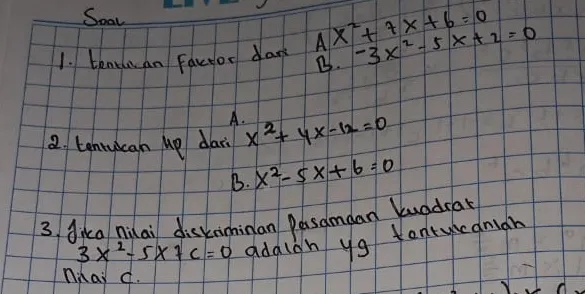 Soal
1. tentukan Factor dari A x² + 7x + 6 = 0
B. -3x² - 5x + 2 = 0
A.
2. tentukan Hp dari x² + 4x - 12 = 0
B. x² - 5x + 6 = 0
3. Jika nilai diskriminan Pasamaan kuadrat
3x² - 5x + c = 0 adalah 49 tentukanlah
nilai c.